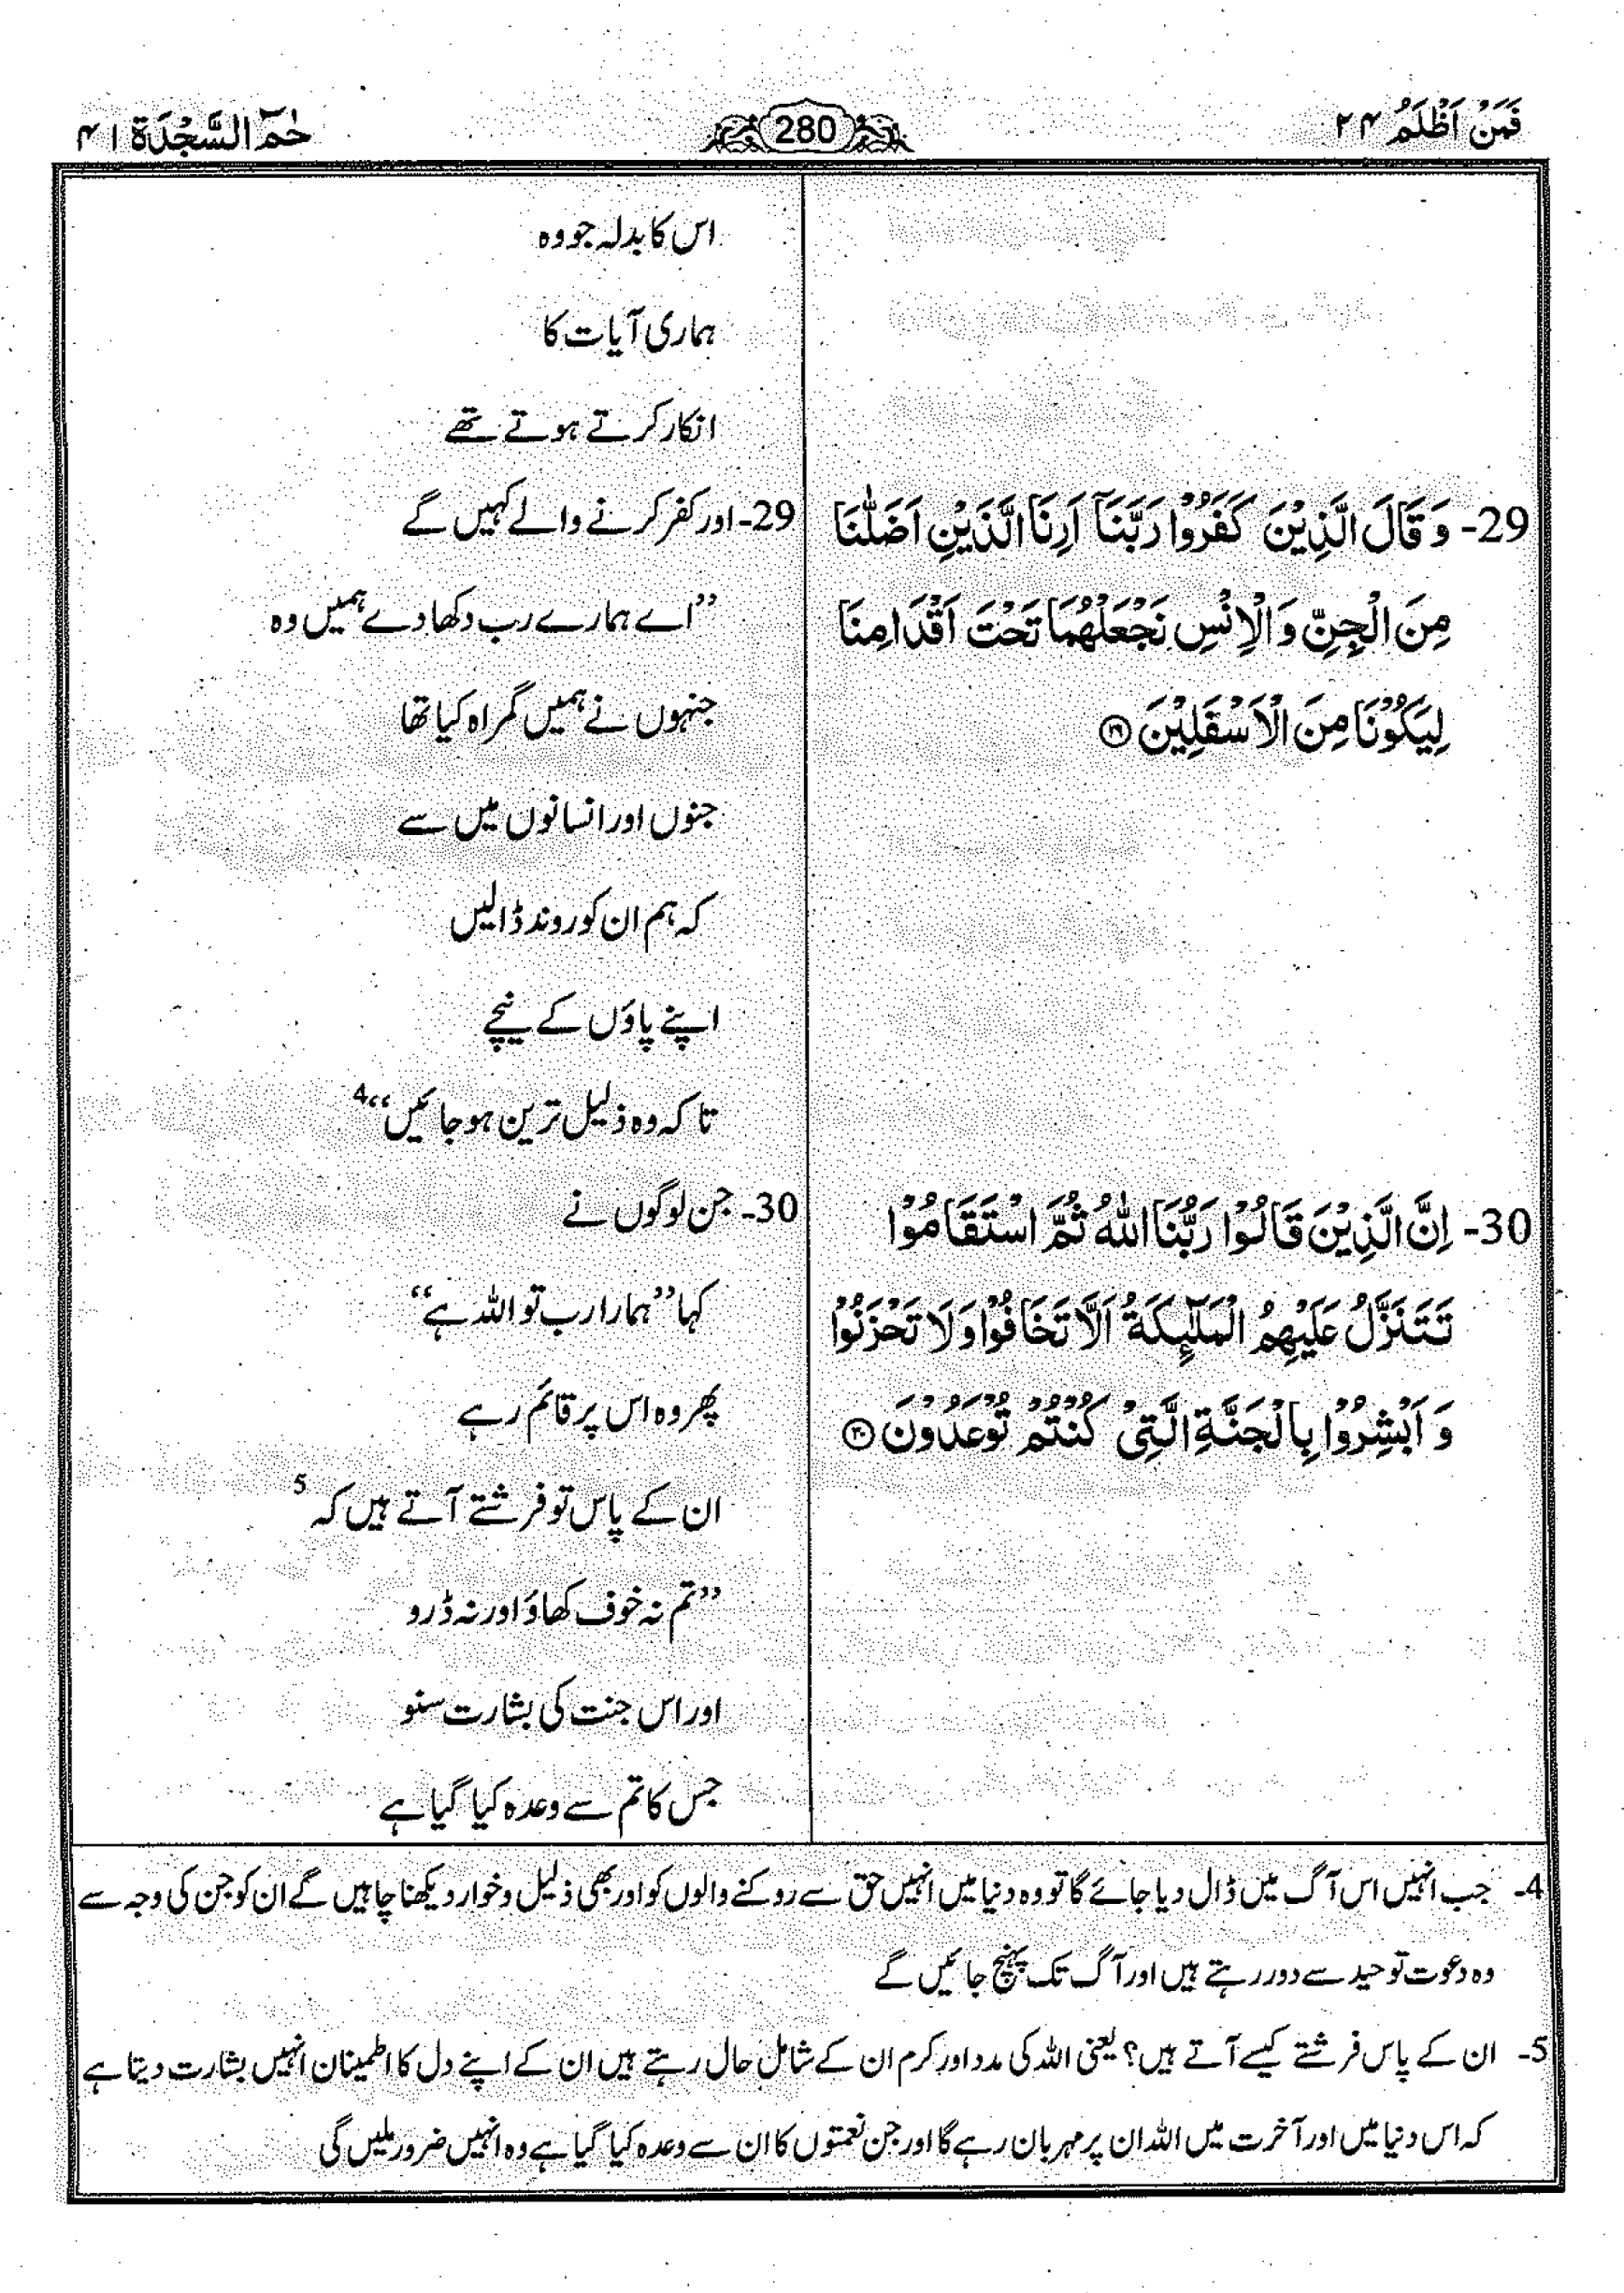 فَمَنْ اَظْلَمُ ۲۴
280
حٰمٓ السَّجْدَة ۴۱
29- وَ قَالَ الَّذِيْنَ كَفَرُوْا رَبَّنَاۤ اَرِنَا الَّذَيْنِ اَضَلّٰنَا
مِنَ الْجِنِّ وَ الْاِنْسِ نَجْعَلْهُمَا تَحْتَ اَقْدَامِنَا
لِيَكُوْنَا مِنَ الْاَسْفَلِيْنَ ۲۹
30- اِنَّ الَّذِيْنَ قَالُوْا رَبُّنَا اللّٰهُ ثُمَّ اسْتَقَامُوْا
تَتَنَزَّلُ عَلَيْهِمُ الْمَلٰٓىِٕكَةُ اَلَّا تَخَافُوْا وَ لَا تَحْزَنُوْا
وَ اَبْشِرُوْا بِالْجَنَّةِ الَّتِيْ كُنْتُمْ تُوْعَدُوْنَ ۳۰
اس کا بدلہ جو وہ
ہماری آیات کا
انکار کرتے ہوتے تھے
29- اور کفر کرنے والے کہیں گے
’’اے ہمارے رب دکھا دے ہمیں وہ
جنہوں نے ہمیں گمراہ کیا تھا
جنوں اور انسانوں میں سے
کہ ہم ان کو روند ڈالیں
اپنے پاؤں کے نیچے
تاکہ وہ ذلیل ترین ہو جائیں‘‘ 4
30- جن لوگوں نے
کہا ’’ہمارا رب تو اللہ ہے‘‘
پھر وہ اس پر قائم رہے
ان کے پاس تو فرشتے آتے ہیں کہ 5
’’تم نہ خوف کھاؤ اور نہ ڈرو
اور اس جنت کی بشارت سنو
جس کا تم سے وعدہ کیا گیا ہے
4- جب انہیں اس آگ میں ڈال دیا جائے گا تو وہ دنیا میں انہیں حق سے روکنے والوں کو اور بھی ذلیل و خوار دیکھنا چاہیں گے ان کو جن کی وجہ سے
وہ دعوت توحید سے دور رہتے ہیں اور آگ تک پہنچ جائیں گے
5- ان کے پاس فرشتے کیسے آتے ہیں؟ یعنی اللہ کی مدد اور کرم ان کے شامل حال رہتے ہیں ان کے اپنے دل کا اطمینان انہیں بشارت دیتا ہے
کہ اس دنیا میں اور آخرت میں اللہ ان پر مہربان رہے گا اور جن نعمتوں کا ان سے وعدہ کیا گیا ہے وہ انہیں ضرور ملیں گی